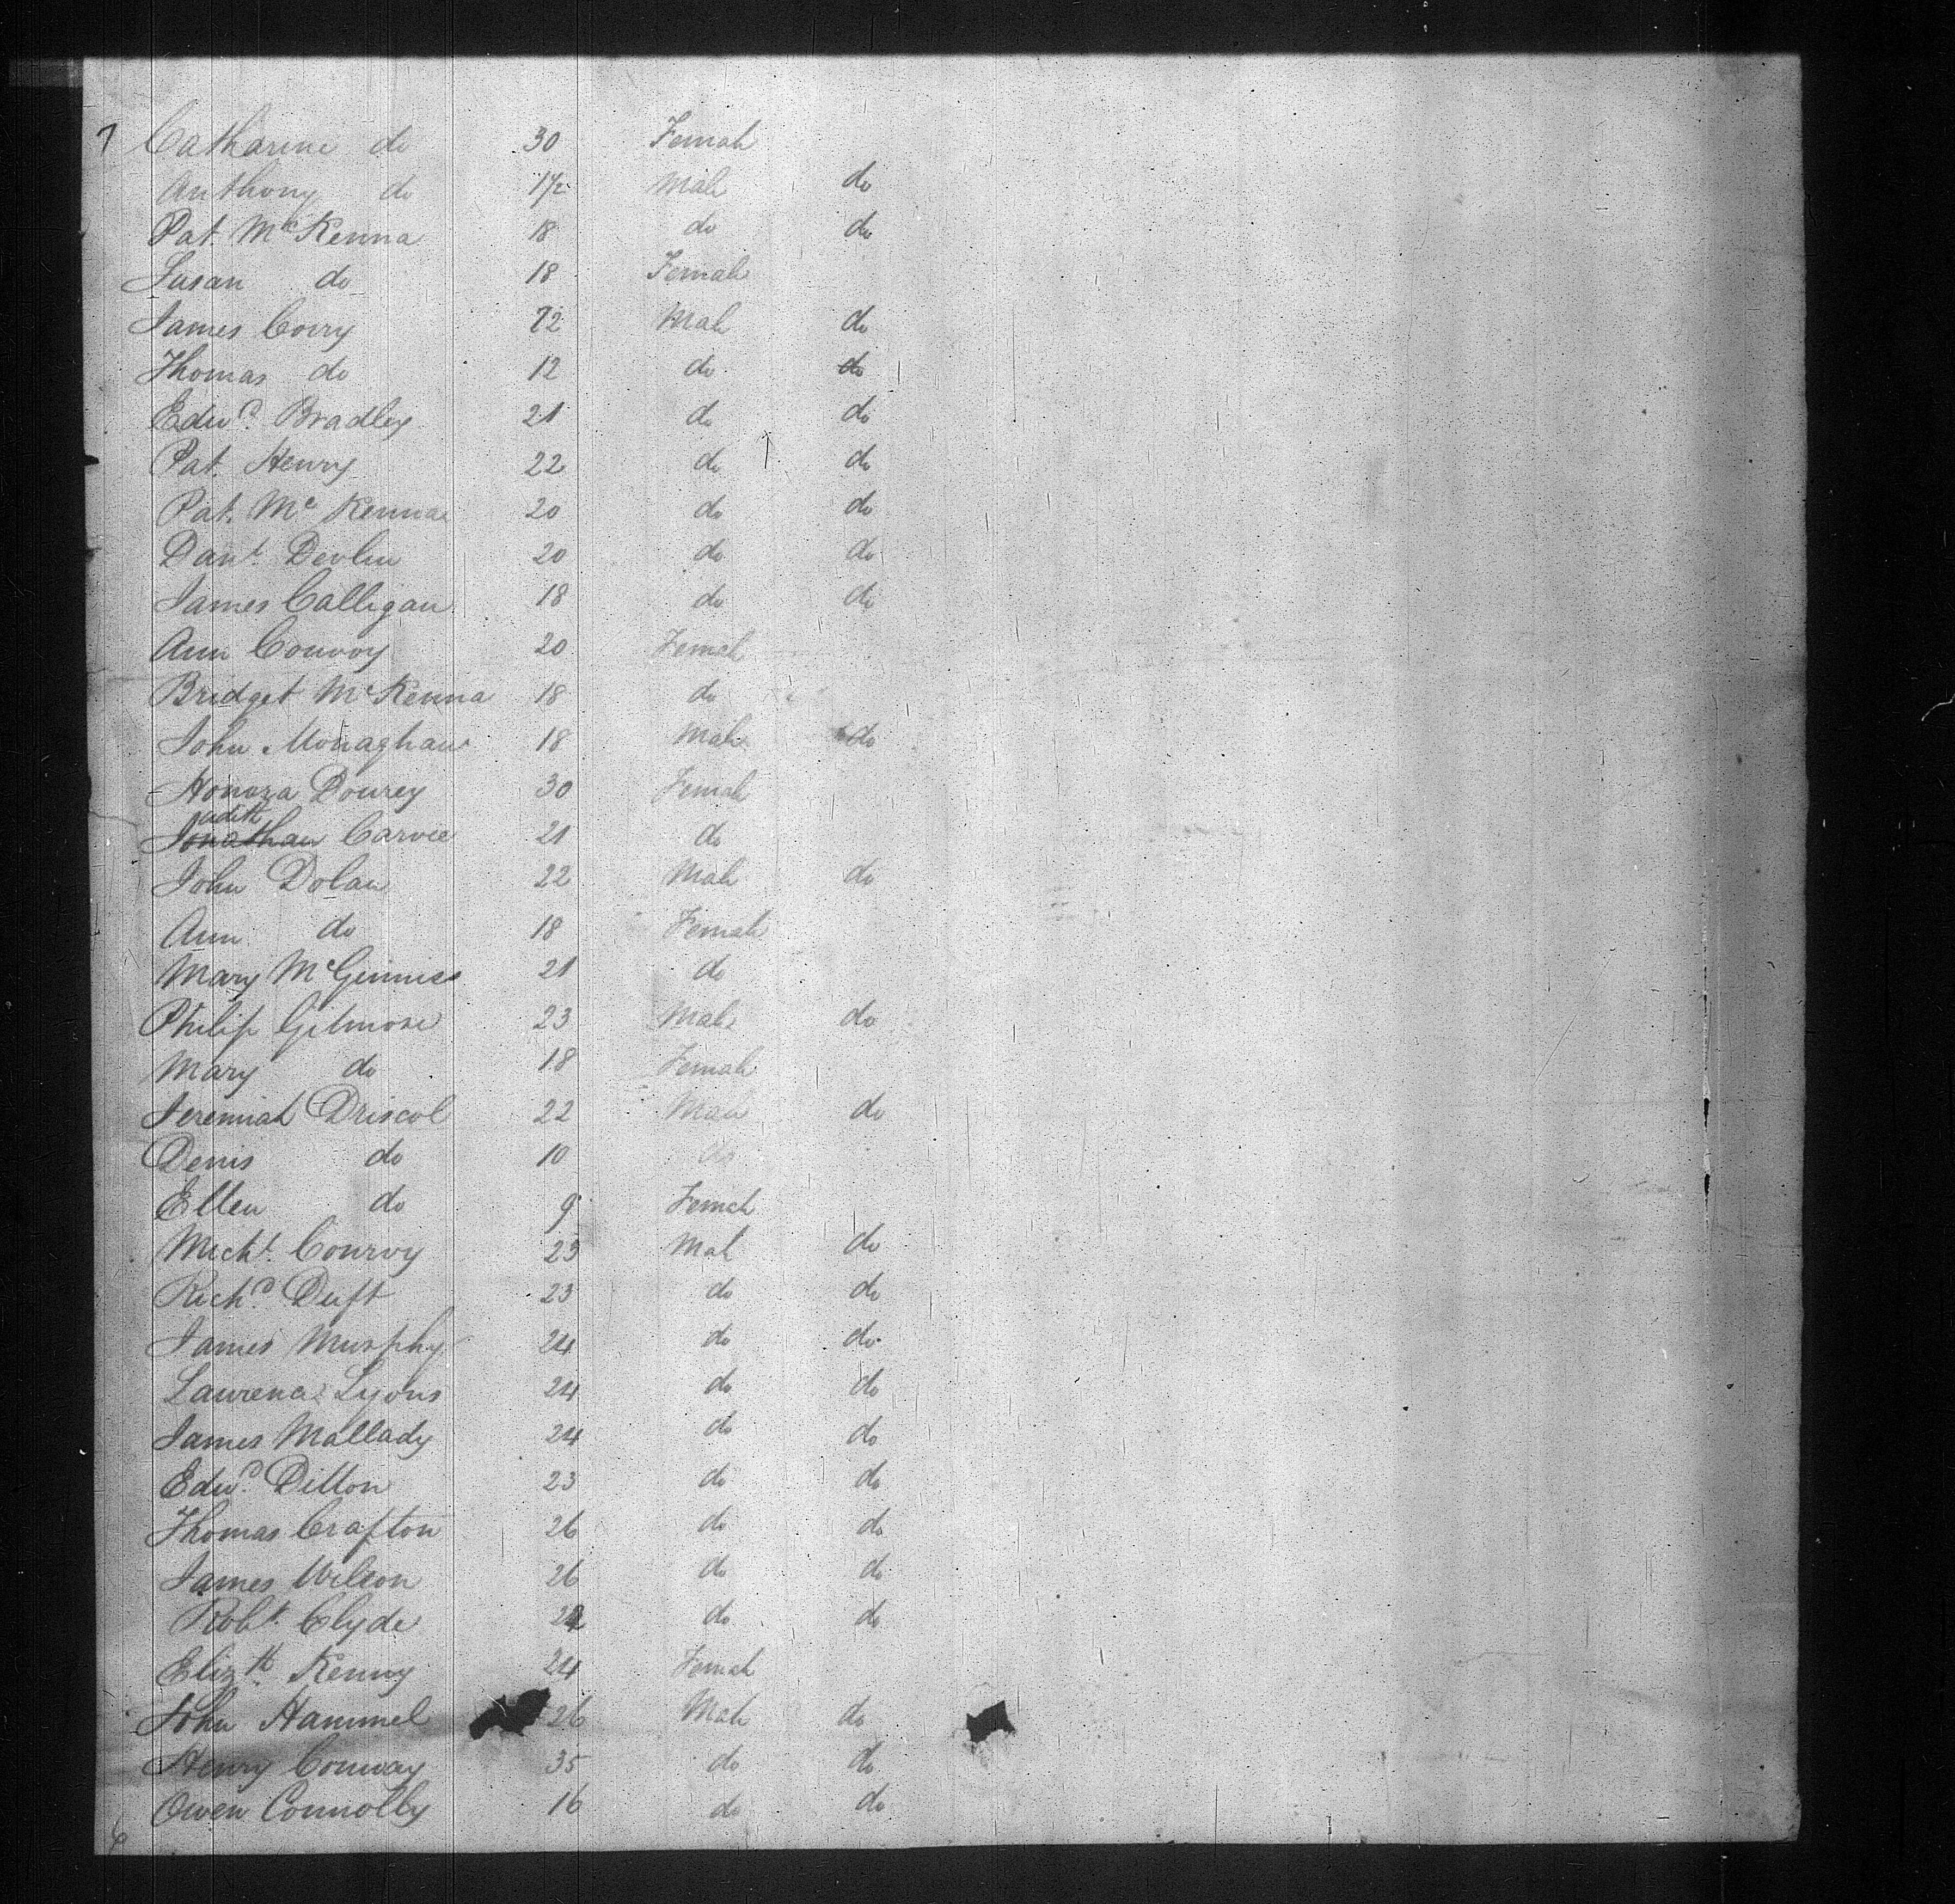 7 Catharine do 30 Female
Anthony do 1 1/2 Male do
Pat. McKenna 18 do do
Susan do 18 Female
James Corry 72 Male do
Thomas do 12 do do
Edwd. Bradley 21 do do
Pat. Henry 22 do do
Pat. Mc Kenna 20 do do
Danl. Devlin 20 do do
James Calligan 18 do do
Ann Convoy 20 Female
Bridget McKenna 18 do
John Monaghan 18 Male do
Honora Dourey 30 Female
Judith Carvee 21 do
John Dolan 22 Male do
Ann do 18 Female
Mary McGinniss 21 do
Philip Gilmore 23 Male do
Mary do 18 Female
Jeremiah Driscol 22 Male do
Denis do 10 do
Ellen do 9 Female
Michl. Conroy 23 Male do
Richd. Duft 23 do do
James Murphy 24 do do
Laurence Lyons 24 do do
James Mallady 24 do do
Edwd. Dillon 23 do do
Thomas Crafton 26 do do
James Wilson 26 do do
Robt. Clyde do do
Elizth. Kenny 24 Female
John Hammel 26 Male do
Henry Conway 35 do do
Owen Connolly 16 do do